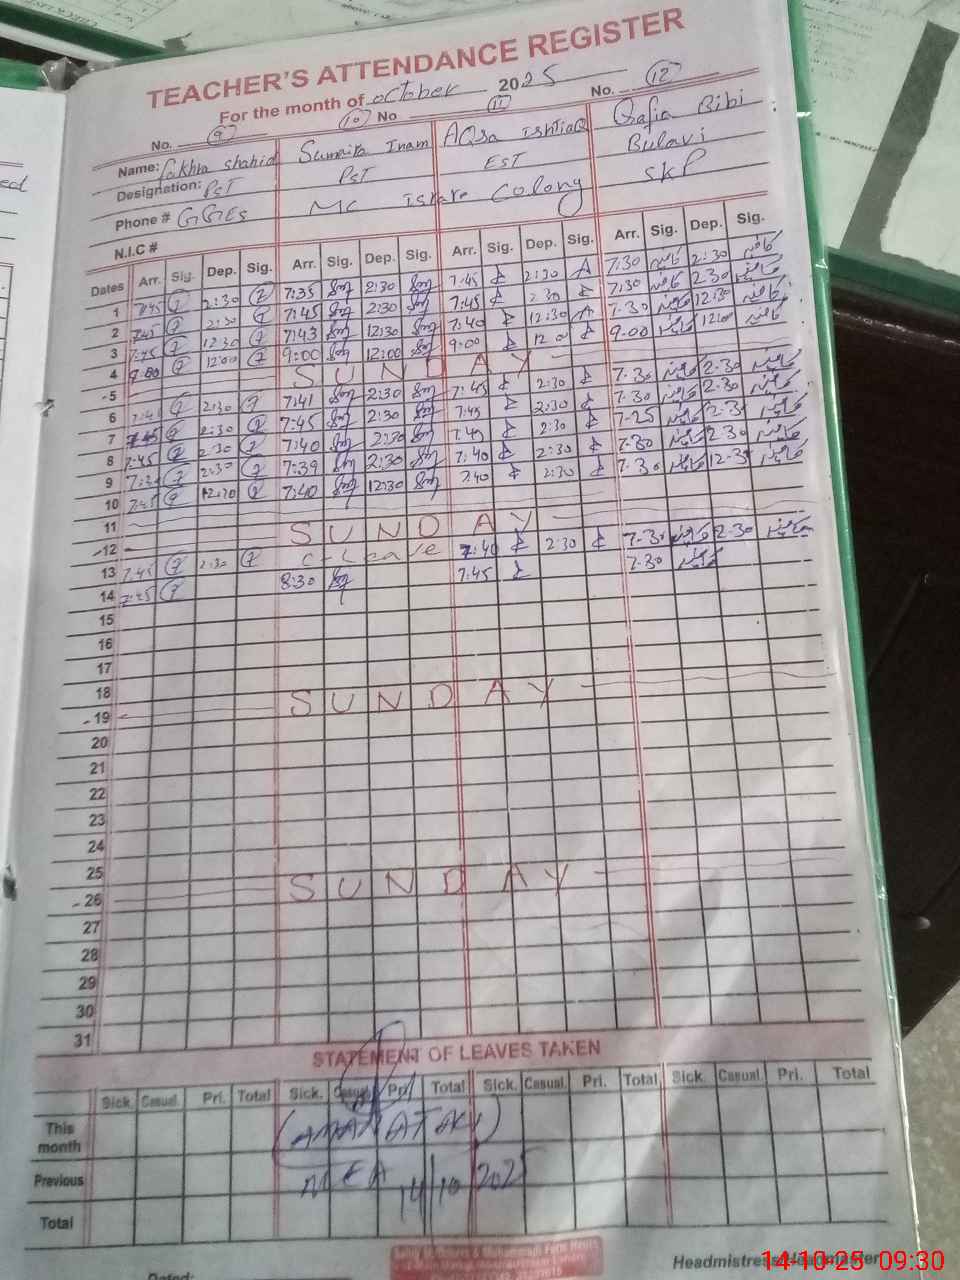 TEACHER'S ATTENDANCE REGISTER
For the month of October 2025
No. 9 10 No 11 No. 12
Name: Fakhra Shahid Sumaira Inam AQsa IshtiaQ Bibi
Designation: PST PST EST Bulavi
Phone # GGES MC Colony SKP
N.I.C #
Dates Arr. Sig. Dep. Sig. Arr. Sig. Dep. Sig. Arr. Sig. Dep. Sig. Arr. Sig. Dep. Sig.
1 7:45 2:30 7:35 2:30 7:45 2:30 7:30 2:30
2 7:45 2:30 7:45 2:30 7:45 2:30 7:30 2:30
3 7:45 12:30 7:43 12:30 7:40 12:30 7:30 12:30
4 9:00 12:00 9:00 12:00 9:00 12:00 9:00 12:00
5 SUNDAY
6 7:41 2:30 7:41 2:30 7:45 2:30 7:30 2:30
7 7:45 2:30 7:45 2:30 7:45 2:30 7:30 2:30
8 7:45 2:30 7:40 2:30 7:40 2:30 7-25 2:3
9 2:30 7:39 2:30 7:40 2:30 7-30 2:30
10 7:45 12:30 7:40 12:30 7:40 2:30 7:30 12-30
11
12 SUNDAY
13 7:45 2:30 C-Leave 7:40 2:30 7-30 2-30
14 7:45 8:30 7:45 7:30
15
16
17
18
19 SUNDAY
20
21
22
23
24
25
26 SUNDAY
27
28
29
30
31
STATEMENT OF LEAVES TAKEN
Sick. Casual. Pri. Total Sick. Casual Pri. Total Sick. Casual. Pri. Total Sick. Casual. Pri. Total
This month
Previous
Total
14/10/2025
Headmistress/Headmaster
Dated:
14-10-25 09:30